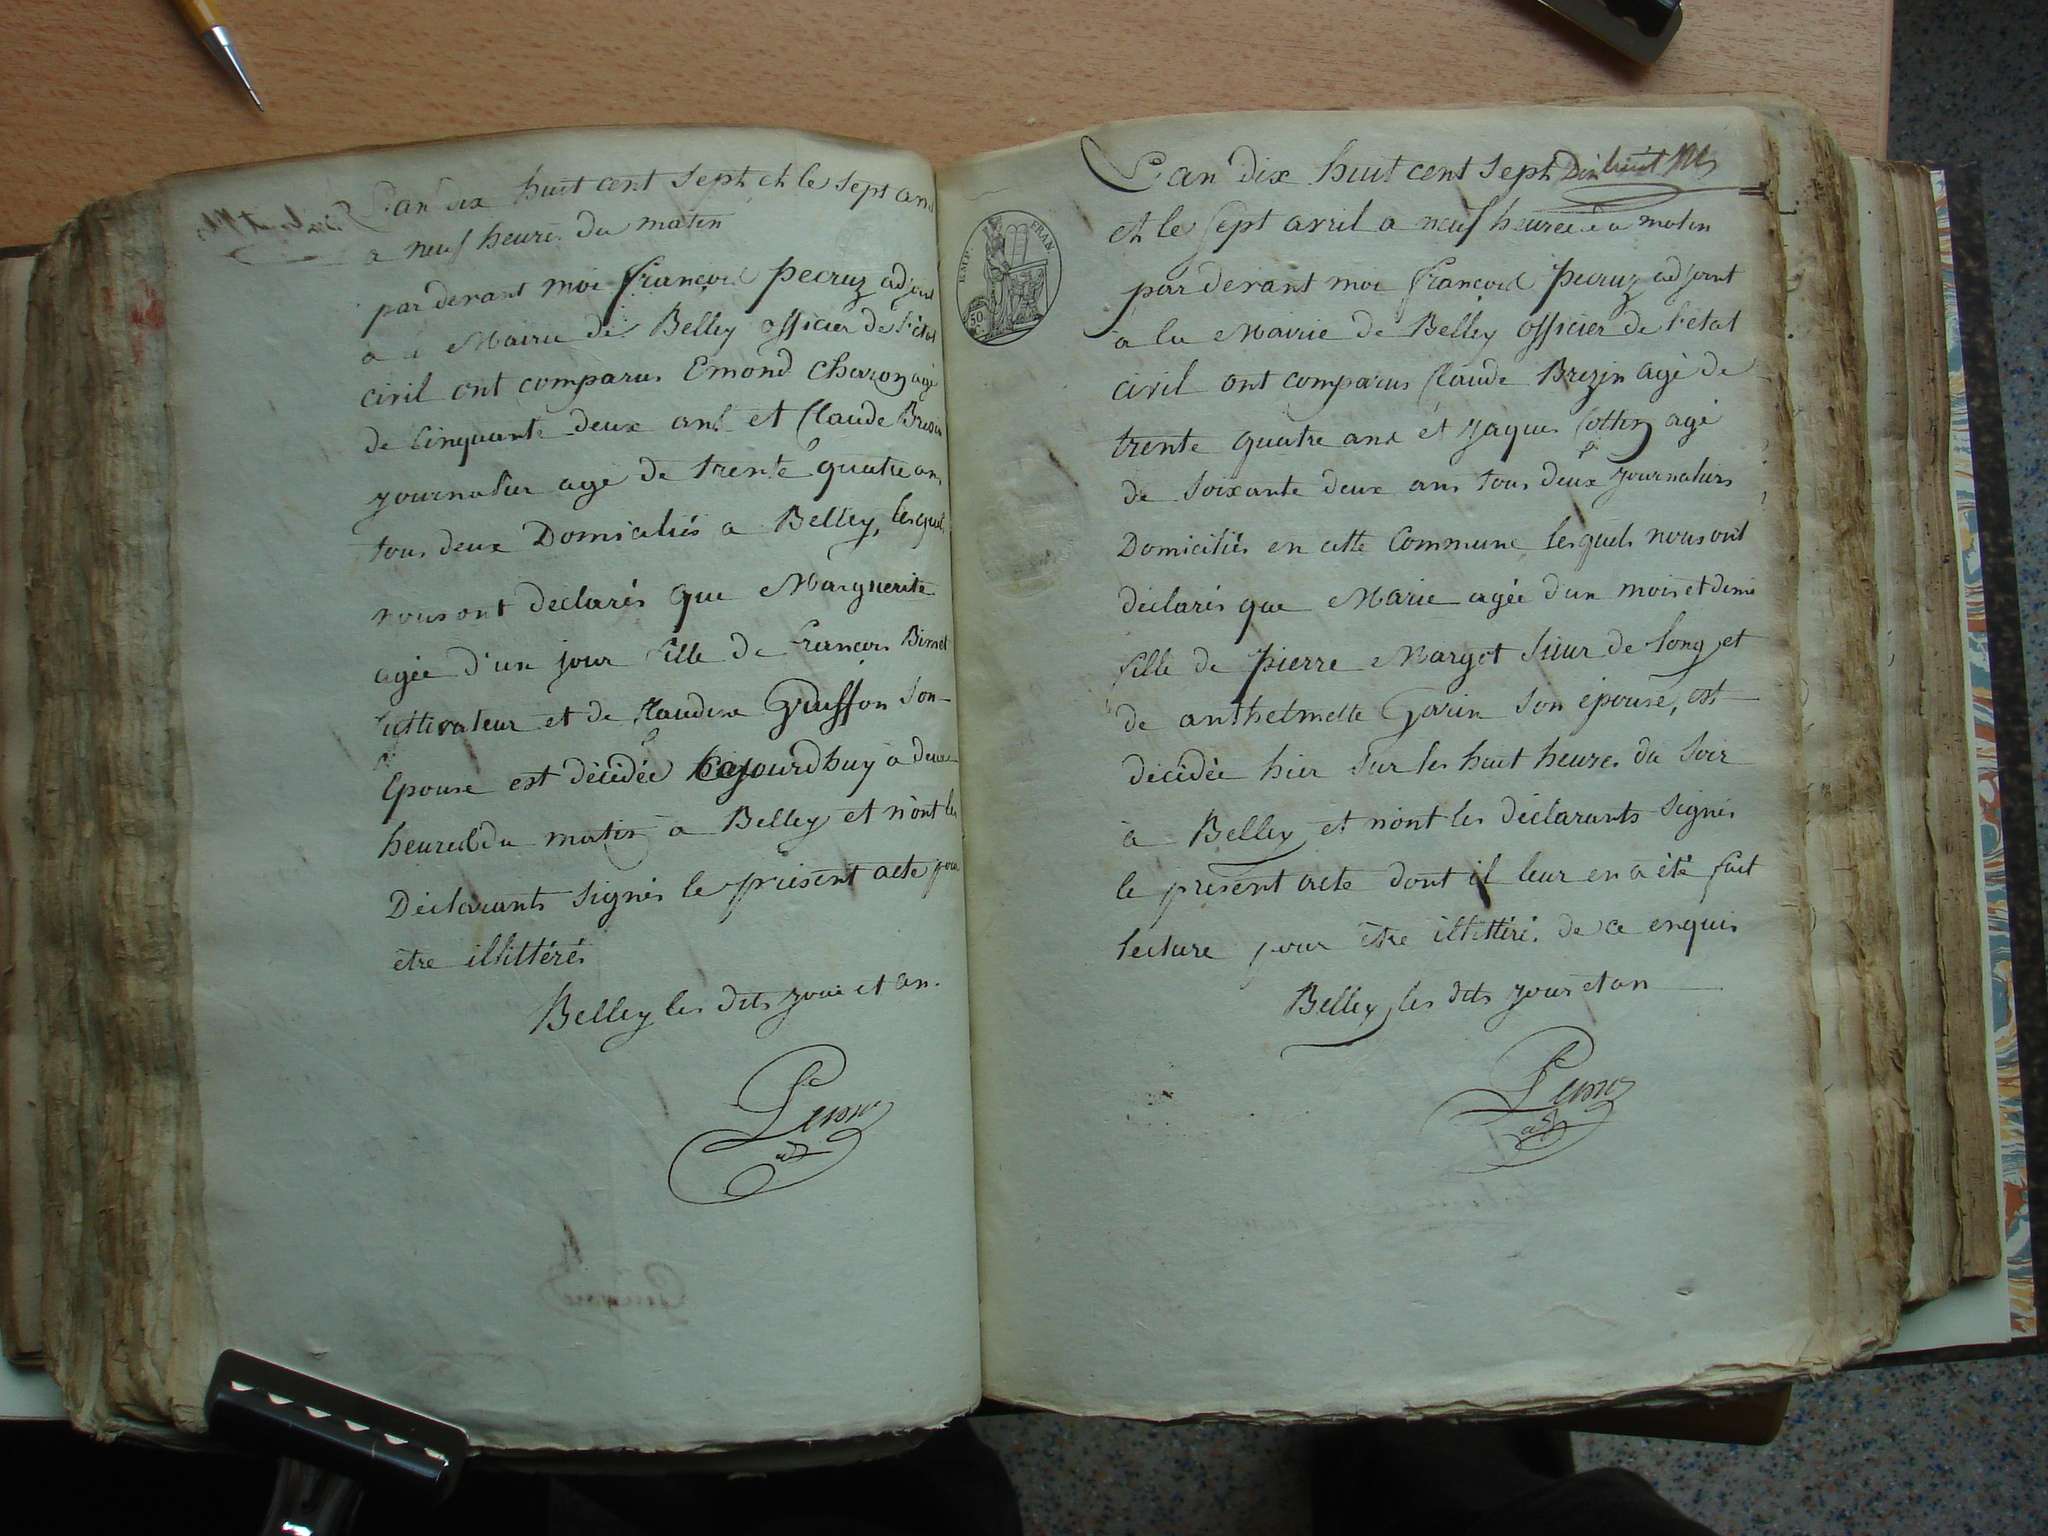 L'an dix huit cent sept et le sept
a neuf heures du matin
par devant moi françois Pecruz adjoint
a la Mairie de Belley officier de l'état
civil ont comparus Emond Charon agé
de Cinquante deux ans et Claude Brezin
journalier agé de trente quatre ans
tous deux Domiciliés a Belley, lesquels
nous ont déclarés que Marguerite
agée d'un jour fille de françois
Cultivateur et de Claudine Griffon son
Epouse est décédée aujourdhuy a deux
heures du matin a Belley et n'ont les
Déclarants signés le présent acte pour
être illitérés
Belley les dits jour et an.
Pecruz
adj
L'an dix huit cent sept
et le sept avril a neuf heures du matin
par devant moi françois Pecruz adjoint
à la Mairie de Belley officier de l'etat
civil ont comparus Claude Brezin agé de
trente quatre ans et Jaques Cottin agé
de soixante deux ans tous deux journaliers
Domiciliés en cette Commune lesquels nous ont
déclarés que Marie agée d'un mois et demi
fille de pierre Margot sieur de long et
de anthelmette Gorin son épouse, est
décédée hier sur les huit heures du soir
à Belley et n'ont les déclarants signés
le présent acte dont il leur en a été fait
lecture pour être illitérés de ce enquis
Belley les dits jour et an
Pecruz
adj
EMP. FRAN.
50